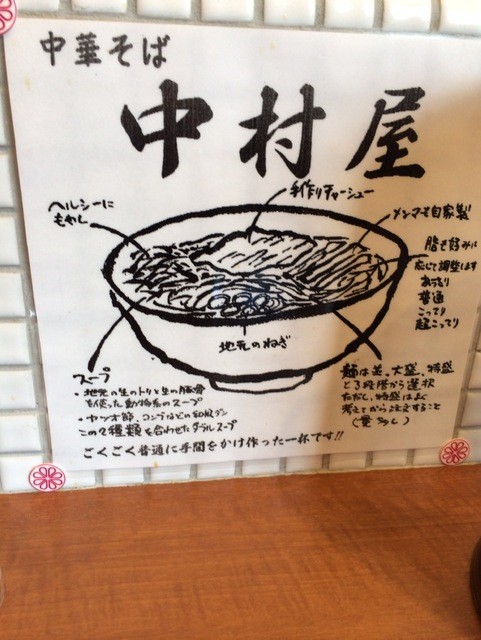 中華そば
中村屋
手作りチャーシュー
ヘルシーに
もやし
メンマも自家製
脂も好みに
応じて調整します
あっさり
普通
こってり
超こってり
地元のねぎ
スープ
・地元の生のトリと生の豚骨
を使った動物系のスープ
・カツオ節、コンブなどの和風ダシ
この2種類を合わせたダブルスープ
ごくごく普通に手間をかけ作った一杯です!!
麺は並、大盛、特盛
と3段階から選択
ただし、特盛はよく
考えてから注文すること
(量多し)